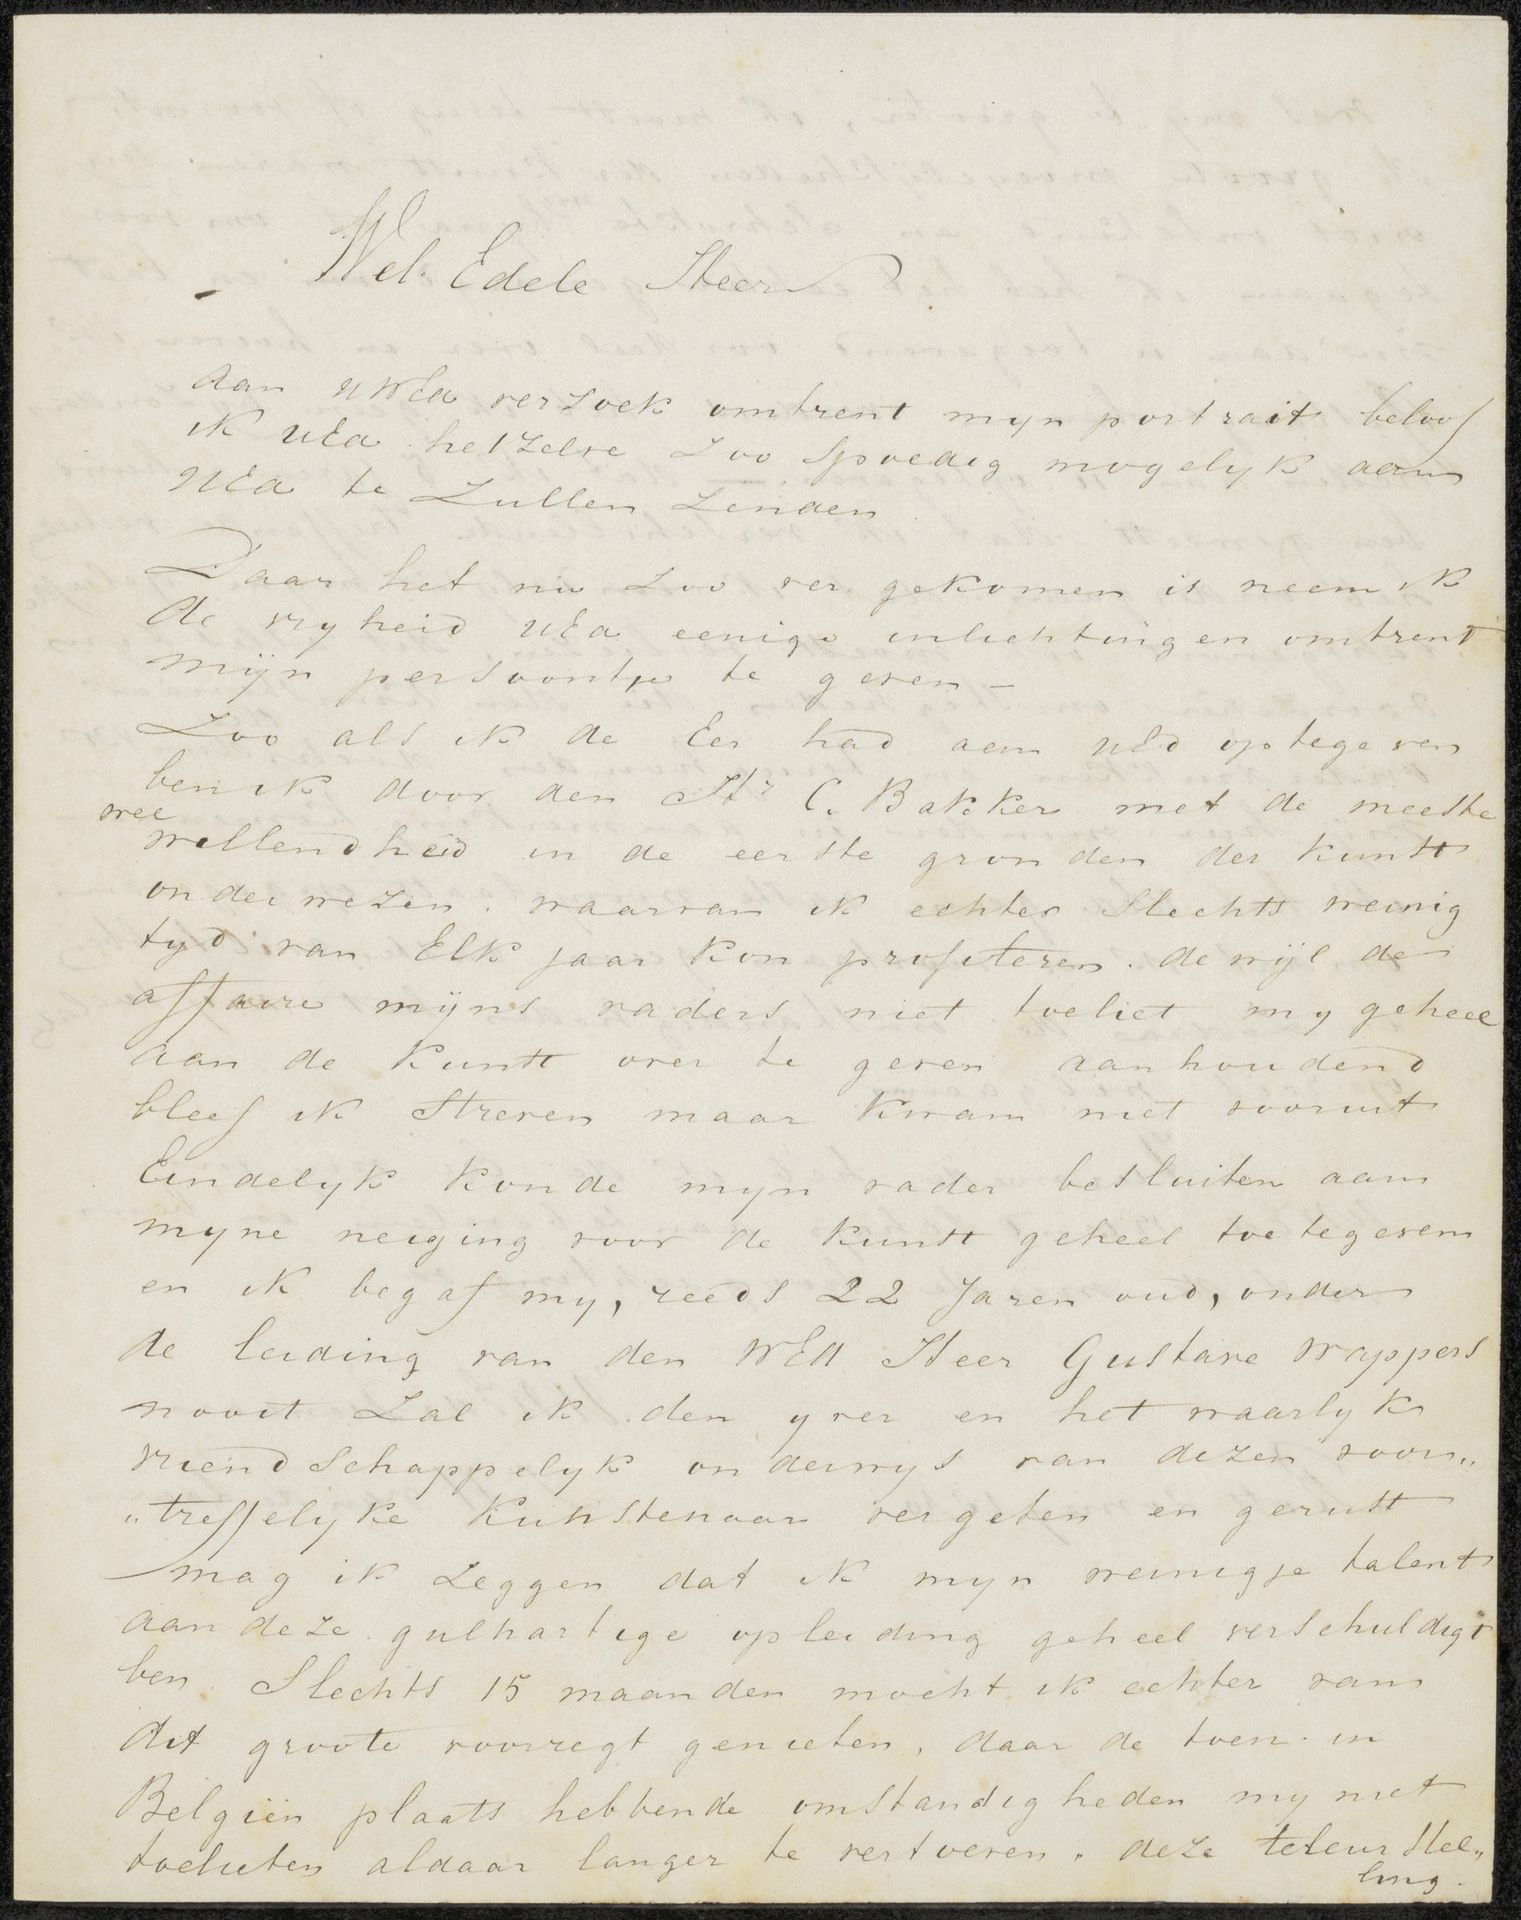 Wel. Edele Heer
Aan UWEd verzoek omtrent mijn portrait beloof
ik UEd hetzelve Zoo Spoedig mogelyk aan
UEd te Zullen Zenden
Daar het nu Zoo ver gekomen is neem ik
de vryheid UEd eenige inlichtingen omtrent
mijn persoontje te geven –
Zoo als ik de Eer had aan UEd optegeven
ben ik door den Hr C. Bakker met de meeste
wel
willendheid in de eerste gronden der kunst
onderwezen. waarvan ik echter Slechts weinig
tyd van Elk jaar kon profiteren. dewijl de
affaire mijns vaders niet toeliet my geheel
aan de kunst over te geven aanhoudend
bleef ik Streven maar kwam niet vooruit
Eindelyk konde myn vader besluiten aan
myne neiging voor de kunst geheel toetegeven
en ik begaf my, reeds 22 Jaren oud, onder
de leiding van den WEd Heer Gustave Wappers
nooit Zal ik den yver en het waarlyk
vriendschappelyk onderwys van dezen voor„
„treffelyke Kunstenaar vergeten en gerust
mag ik Zeggen dat ik myn weinigje talent
aan deze gulhartige opleiding geheel verschuldigt
ben. Slechts 15 maanden mocht ik echter van
dit groote voorregt genieten, daar de toen in
Belgiën plaats hebbende omstandigheden my niet
toelieten aldaar langer te vertoeven. deze teleurstel„
ling.